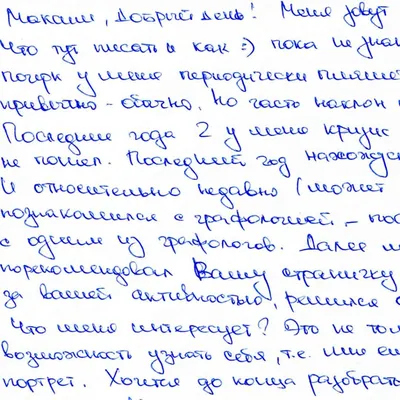 Максим, Добрый день! Меня зовут
Что тут писать и как :) пока не знаю
почерк у меня периодически пляше
привычно - обычно. Но часто наклон
Последние года 2 у меня кризис
не пошел. Последний год нахожус
И относительно недавно (может
познакомился с графологией - пос
с одним из графологов. Далее м
порекомендовал Вашу страничку
за вашей активностью, решился
Что меня интересует? Это не тол
возможность узнать себя, т.е. мне
портрет. Хочется до конца разобрать